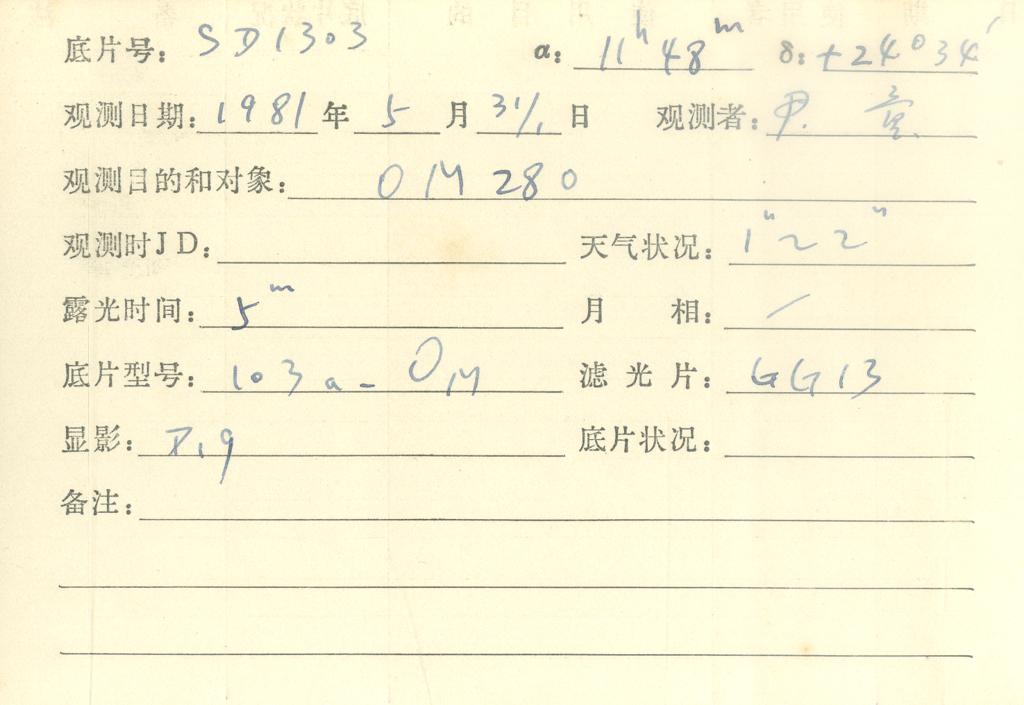 底片号: SD1303 α: 11h 48m δ: +24°34′
观测日期: 1981 年 5 月 31/1 日 观测者:
观测目的和对象: OM 280
观测时JD: 天气状况: 1" ~ 2"
露光时间: 5m 月 相: /
底片型号: 103a-OM 滤光片: GG13
显影: D19 底片状况:
备注: